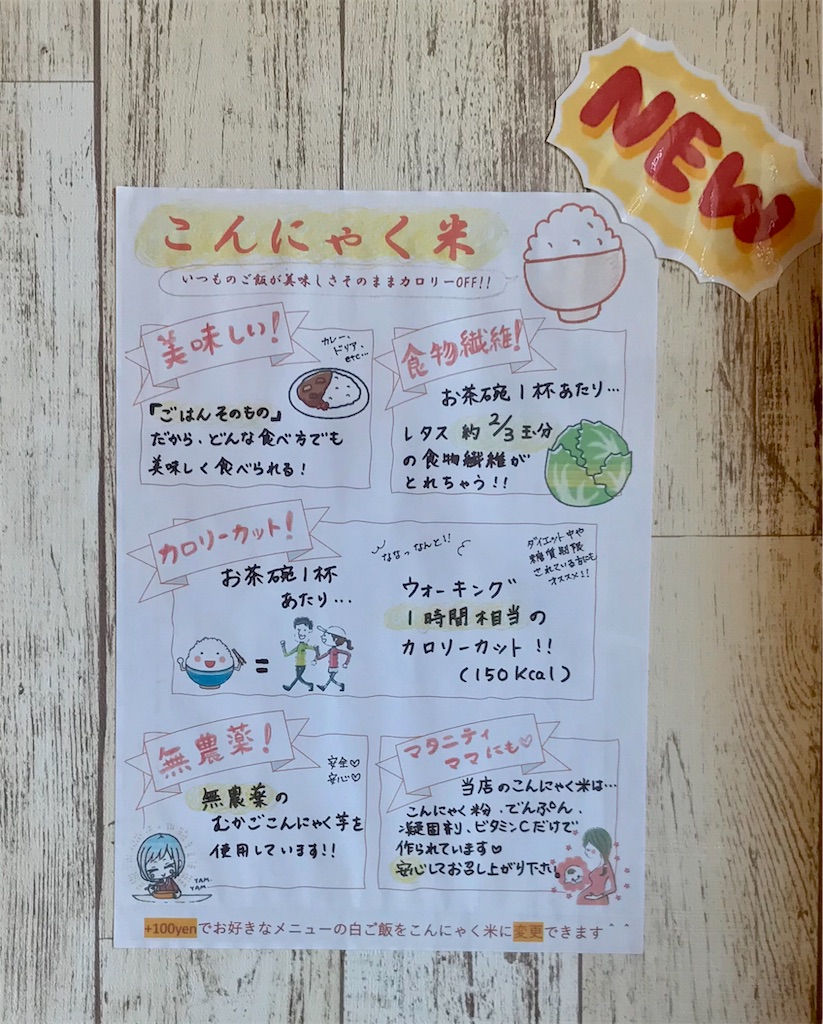 NEW
こんにゃく米
いつものご飯が美味しさそのままカロリーOFF!!
美味しい!
カレー、
ドリア、
etc...
『ごはんそのもの』
だから、どんな食べ方でも
美味しく食べられる!
食物繊維!
お茶碗1杯あたり...
レタス 約 2/3 玉分
の食物繊維が
とれちゃう!!
カロリーカット!
お茶碗1杯
あたり...
=
ななっなんと!!
ダイエット中や
糖質制限
されている方にも
オススメ!!
ウォーキング
1時間相当の
カロリーカット!!
(150Kcal)
無農薬!
安全♡
安心♡
無農薬の
むかごこんにゃく芋を
使用しています!!
YAM.
YAM.
マタニティ
ママにも♡
当店のこんにゃく米は...
こんにゃく粉、でんぷん、
凝固剤、ビタミンCだけで
作られています♡
安心してお召し上がり下さい。
+100yenでお好きなメニューの白ご飯をこんにゃく米に変更できます＾＾